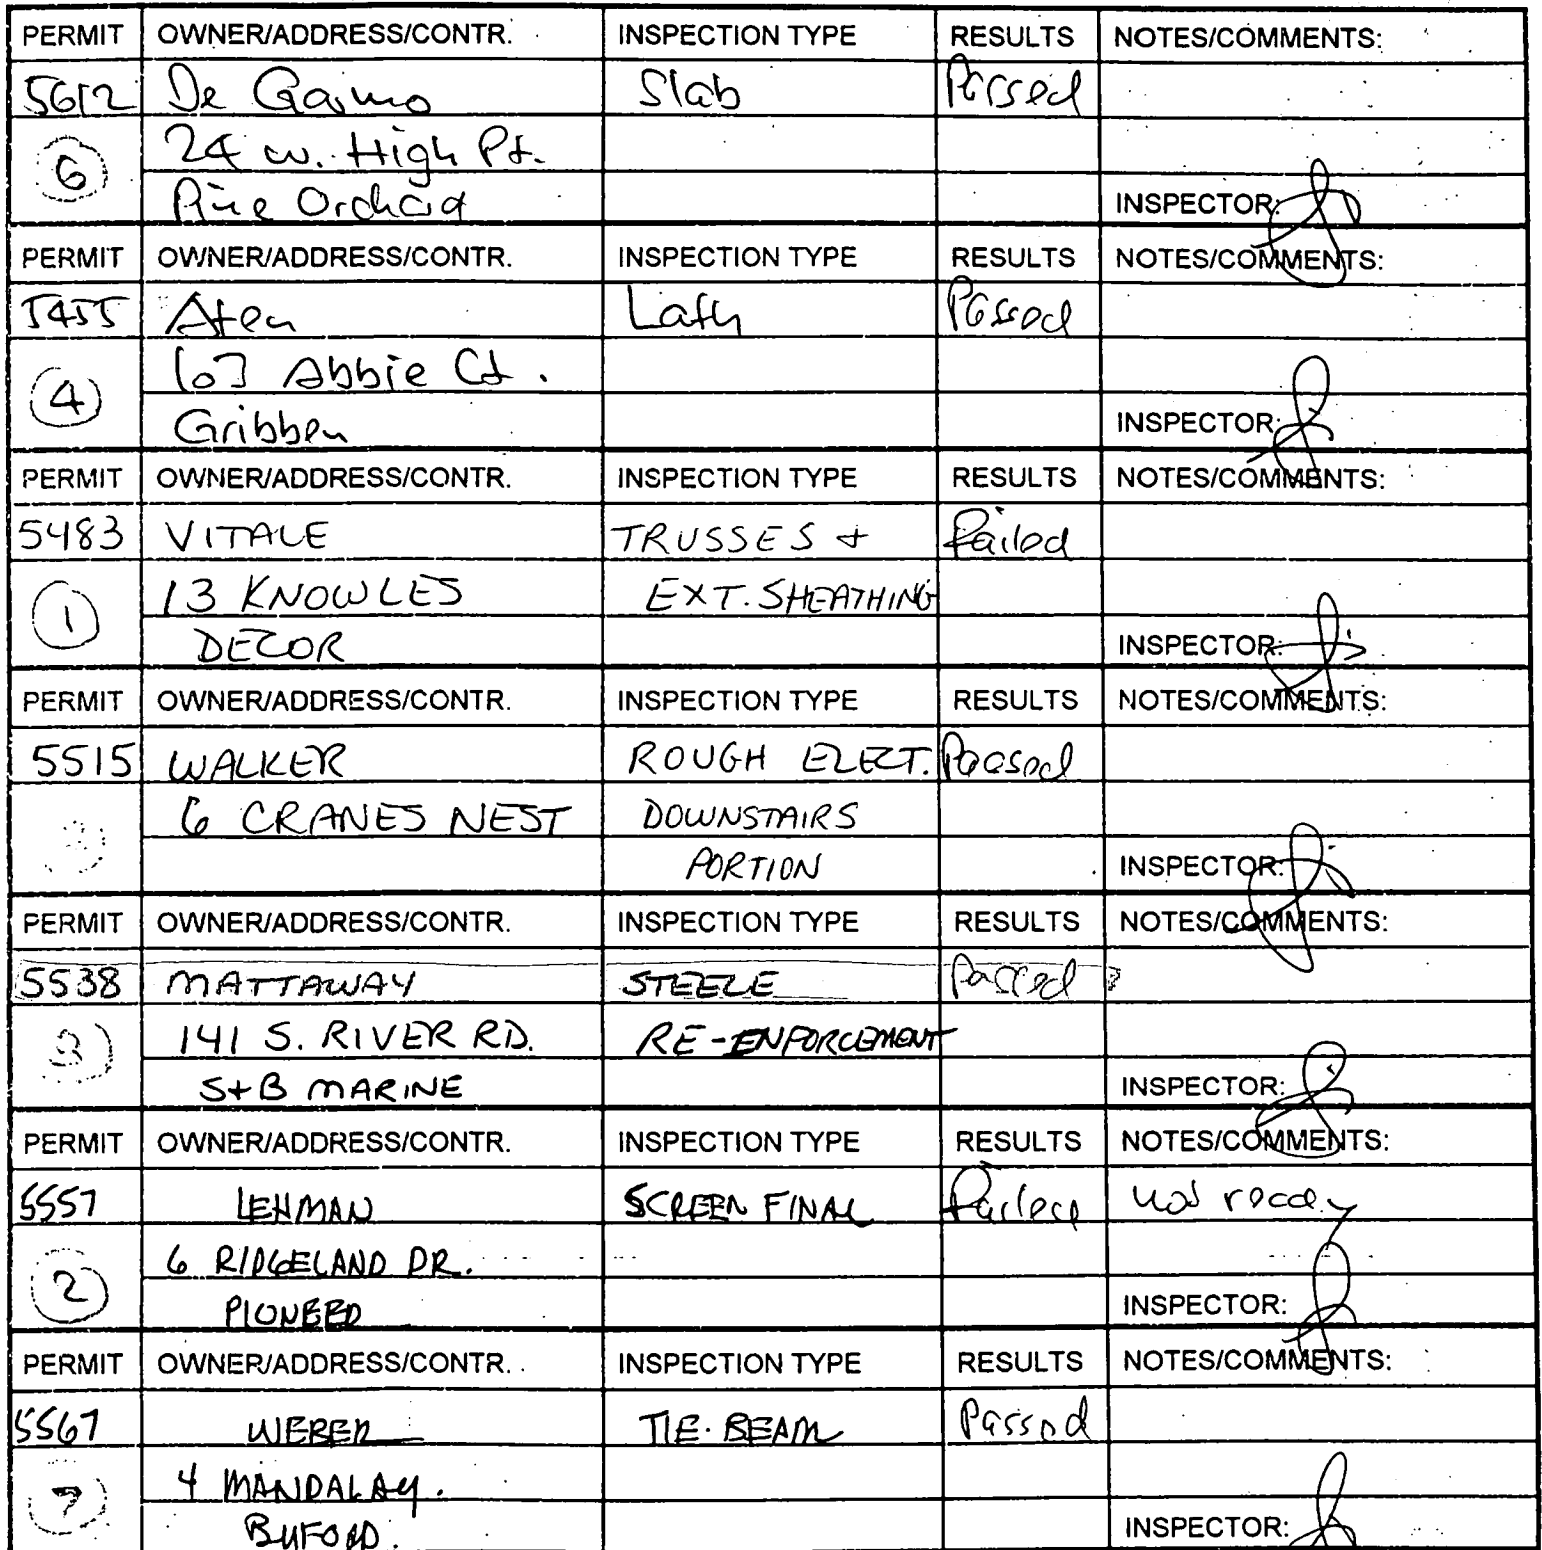 PERMIT OWNER/ADDRESS/CONTR. INSPECTION TYPE RESULTS NOTES/COMMENTS:
5612 De Gaimo Slab Passed
6 24 W. High Pt.
Pine Orchard INSPECTOR:
PERMIT OWNER/ADDRESS/CONTR. INSPECTION TYPE RESULTS NOTES/COMMENTS:
5455 Aten Lath Passed
4 107 Abbie Ct.
Gribben INSPECTOR:
PERMIT OWNER/ADDRESS/CONTR. INSPECTION TYPE RESULTS NOTES/COMMENTS:
5483 VITALE TRUSSES + Failed
1 13 KNOWLES EXT. SHEATHING
DECOR INSPECTOR:
PERMIT OWNER/ADDRESS/CONTR. INSPECTION TYPE RESULTS NOTES/COMMENTS:
5515 WALKER ROUGH ELECT. Passed
6 CRANES NEST DOWNSTAIRS
PORTION INSPECTOR:
PERMIT OWNER/ADDRESS/CONTR. INSPECTION TYPE RESULTS NOTES/COMMENTS:
5538 MATTAWAY STEELE Passed
3 141 S. RIVER RD. RE-ENFORCEMENT
S+B MARINE INSPECTOR:
PERMIT OWNER/ADDRESS/CONTR. INSPECTION TYPE RESULTS NOTES/COMMENTS:
5557 LEHMAN SCREEN FINAL Failed not ready
2 6 RIDGELAND DR.
PIONEER INSPECTOR:
PERMIT OWNER/ADDRESS/CONTR. INSPECTION TYPE RESULTS NOTES/COMMENTS:
5567 WEBER TIE-BEAM Passed
7 4 MANDALAY.
BUFORD. INSPECTOR: